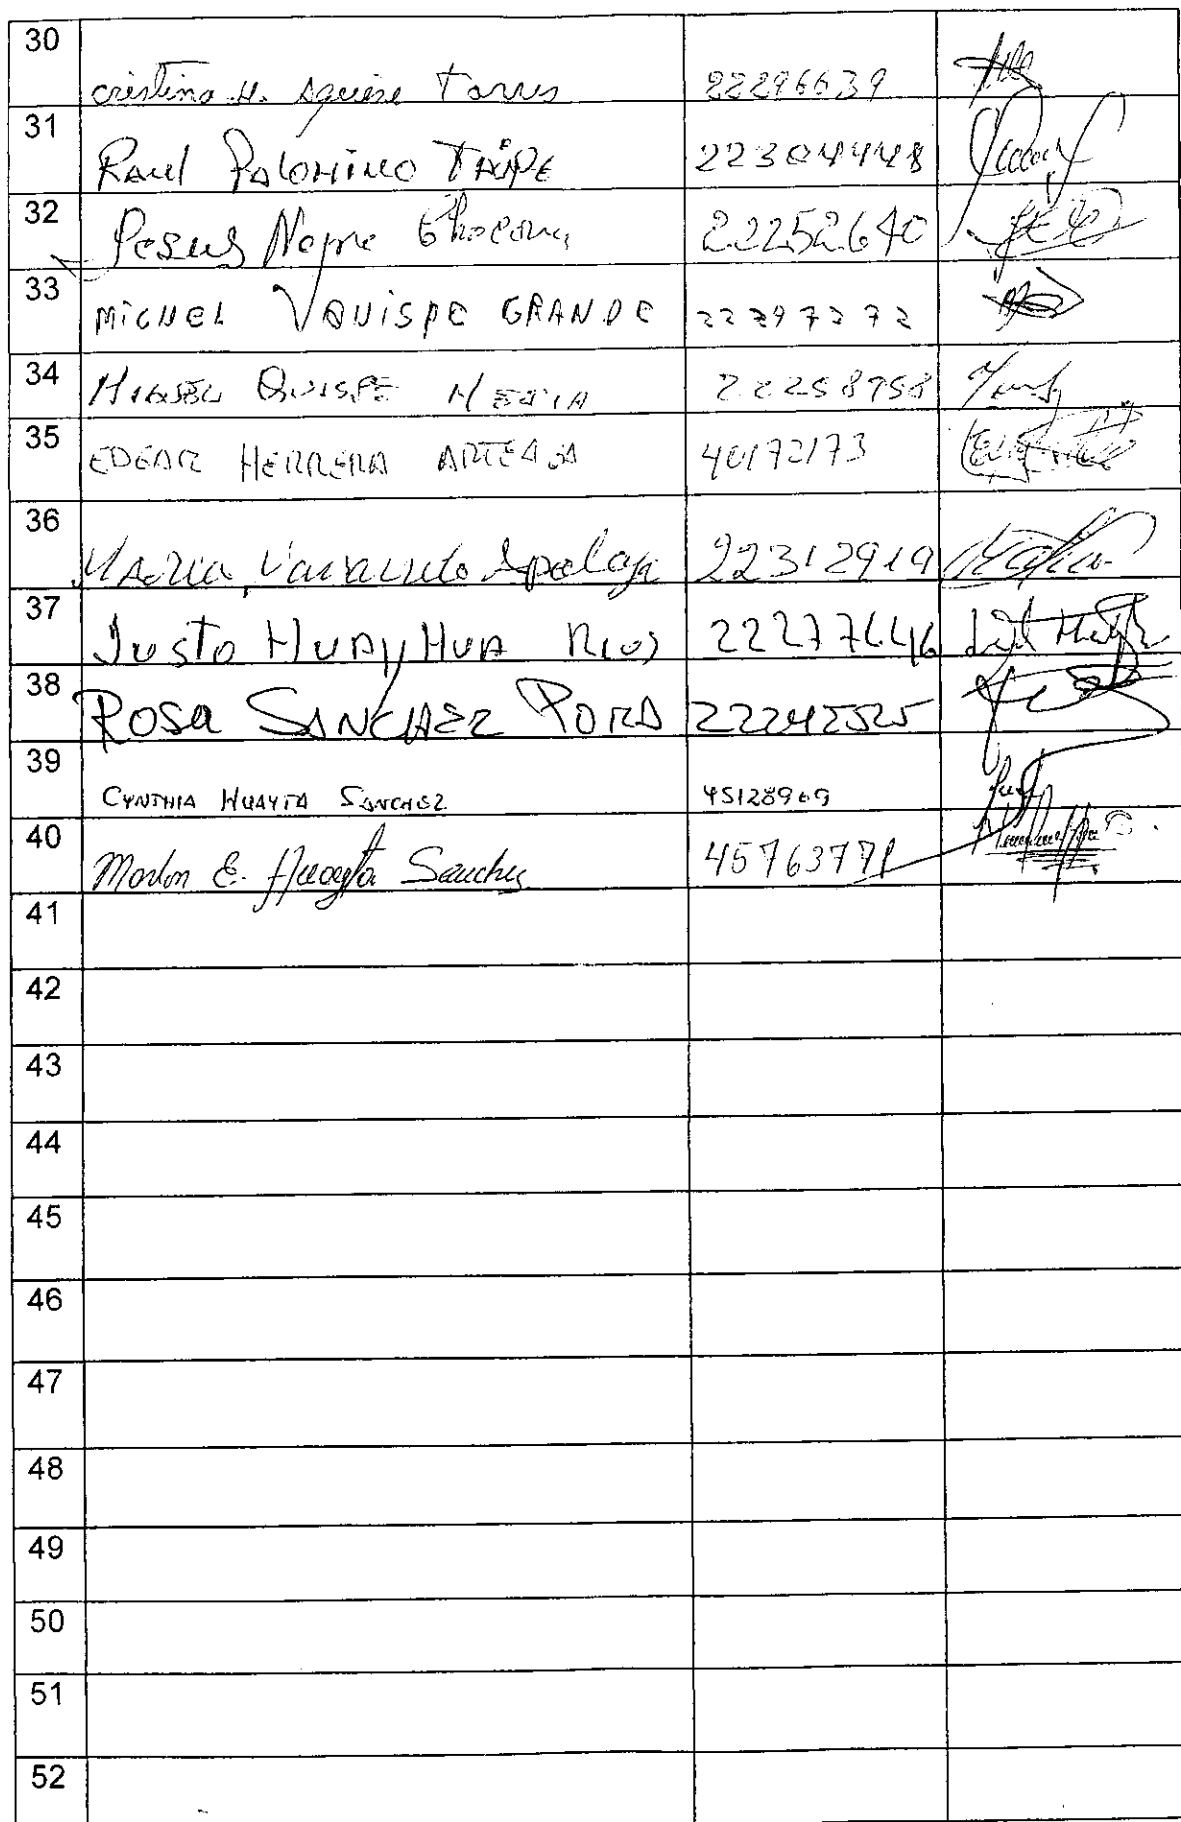 30 Cristina H. Aguirre Torres 22296639
31 Raul PALOMINO TAIPE 22304448
32 Jesus 22252640
33 MIGUEL VQUISPE GRANDE 22297272
34 MIGUEL QUISPE MEJIA 22258758
35 EDGAR HERRERA ARTEAGA 40172173
36 MARIA 22312919
37 Justo HUAYHUA RIOS
38 ROSA SANCHEZ POMA 22242525
39 CYNTHIA HUAYTA SANCHEZ 45128969
40 Marlon E. Huayta Sanchez 45763771
41
42
43
44
45
46
47
48
49
50
51
52